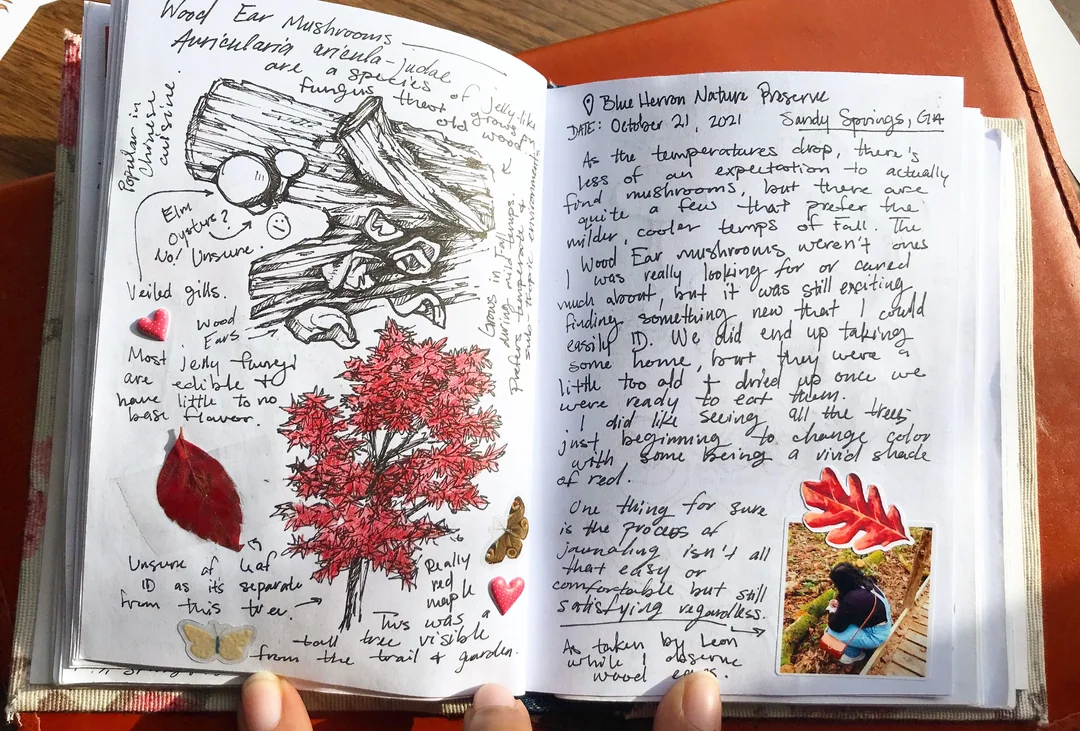 Wood Ear Mushrooms
Auricularia aricula-judae
are a species of jelly-like
fungus that grows on
old wood
Popular in
Chinese
cuisine.
Elm
Oysters?
No! Unsure.
Veiled gills.
Wood
Ears
Grows in Fall
during mild temps.
Prefers temperate &
sub-tropic environments
Most jelly fungi
are edible &
have little to no
base flavor.
Unsure of leaf
ID as its separate
from this tree.
Really
red
maple
This was a
tall tree visible
from the trail & garden.
Blue Herron Nature Preserve
DATE: October 21, 2021 Sandy Springs, GA
As the temperatures drop, there's
less of an expectation to actually
find mushrooms, but there are
quite a few that prefer the
milder, cooler temps of Fall. The
Wood Ear mushrooms weren't ones
I was really looking for or cared
much about, but it was still exciting
finding something new that I could
easily ID. We did end up taking
some home, but they were a
little too old & dried up once we
were ready to eat them.
I did like seeing all the trees
just beginning to change color
with some being a vivid shade
of red.
One thing for sure
is the process of
journaling isn't all
that easy or
comfortable but still
satisfying regardless.
As taken by Leon
while I observe
wood ears.